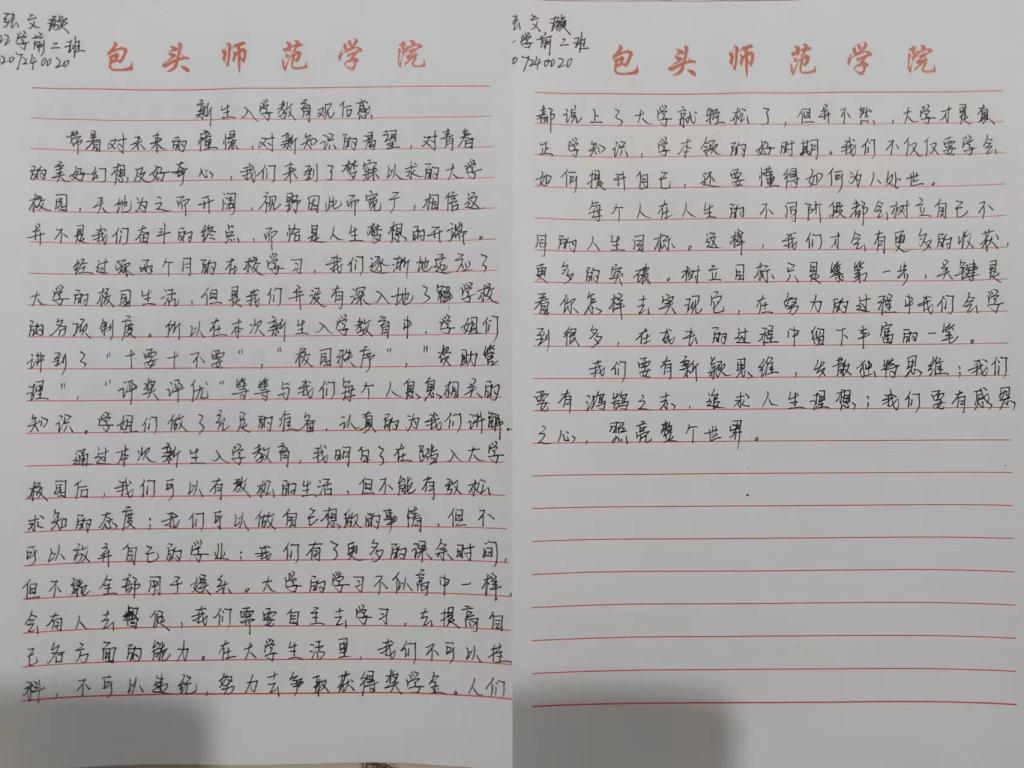 张文璇
22学前二班
20724 0020
包头师范学院
新生入学教育观后感
带着对未来的憧憬,对新知识的希望,对青春
的美好幻想及好奇心,我们来到了梦寐以求的大学
校园,天地为之而开阔,视野因此而宽广,相信这
并不是我们奋斗的终点,而恰是人生梦想的开端。
经过深两个月的在校学习,我们逐渐地适应了
大学的校园生活,但是我们并没有深入地了解学校
的各项制度。所以在本次新生入学教育中,学姐们
讲到了“十要十不要”,“校园秩序”,“资助管
理”,“评奖评优”等等与我们每个人息息相关的
知识。学姐们做了充足的准备,认真的为我们讲解。
通过本次新生入学教育,我明白了在踏入大学
校园后,我们可以有放松的生活,但不能有放松
求知的态度;我们可以做自己想做的事情,但不
可以放弃自己的学业;我们有了更多的课余时间,
但不能全部用于娱乐。大学的学习不似高中一样,
会有人去督促,我们需要自主去学习,去提高自
己各方面的能力。在大学生活里,我们不可以挂
科,不可以违纪,努力去争取获得奖学金。人们
张文璇
学前二班
0724 0020
包头师范学院
都说上了大学就轻松了,但并不然,大学才是真
正学知识,学本领的好时期。我们不仅仅要学会
如何提升自己,还要懂得如何为人处世。
每个人在人生的不同阶段都会树立自己不
同的人生目标。这样,我们才会有更多的收获,
更多的突破。树立目标只是第一步,关键是
看你怎样去实现它,在努力的过程中我们会学
到很多,在成长的过程中留下丰富的一笔。
我们要有新颖思维,发散独特思维;我们
要有鸿鹄之志,追求人生理想;我们要有感恩
之心,照亮整个世界。